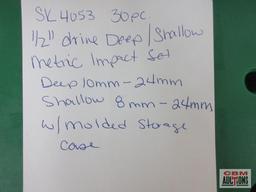 SK 4053 30pc.
1/2" drive Deep/Shallow
Metric Impact Set
Deep 10mm - 24mm
Shallow 8mm - 24mm
w/ molded Storage
Case
CBM
AUCTIONS